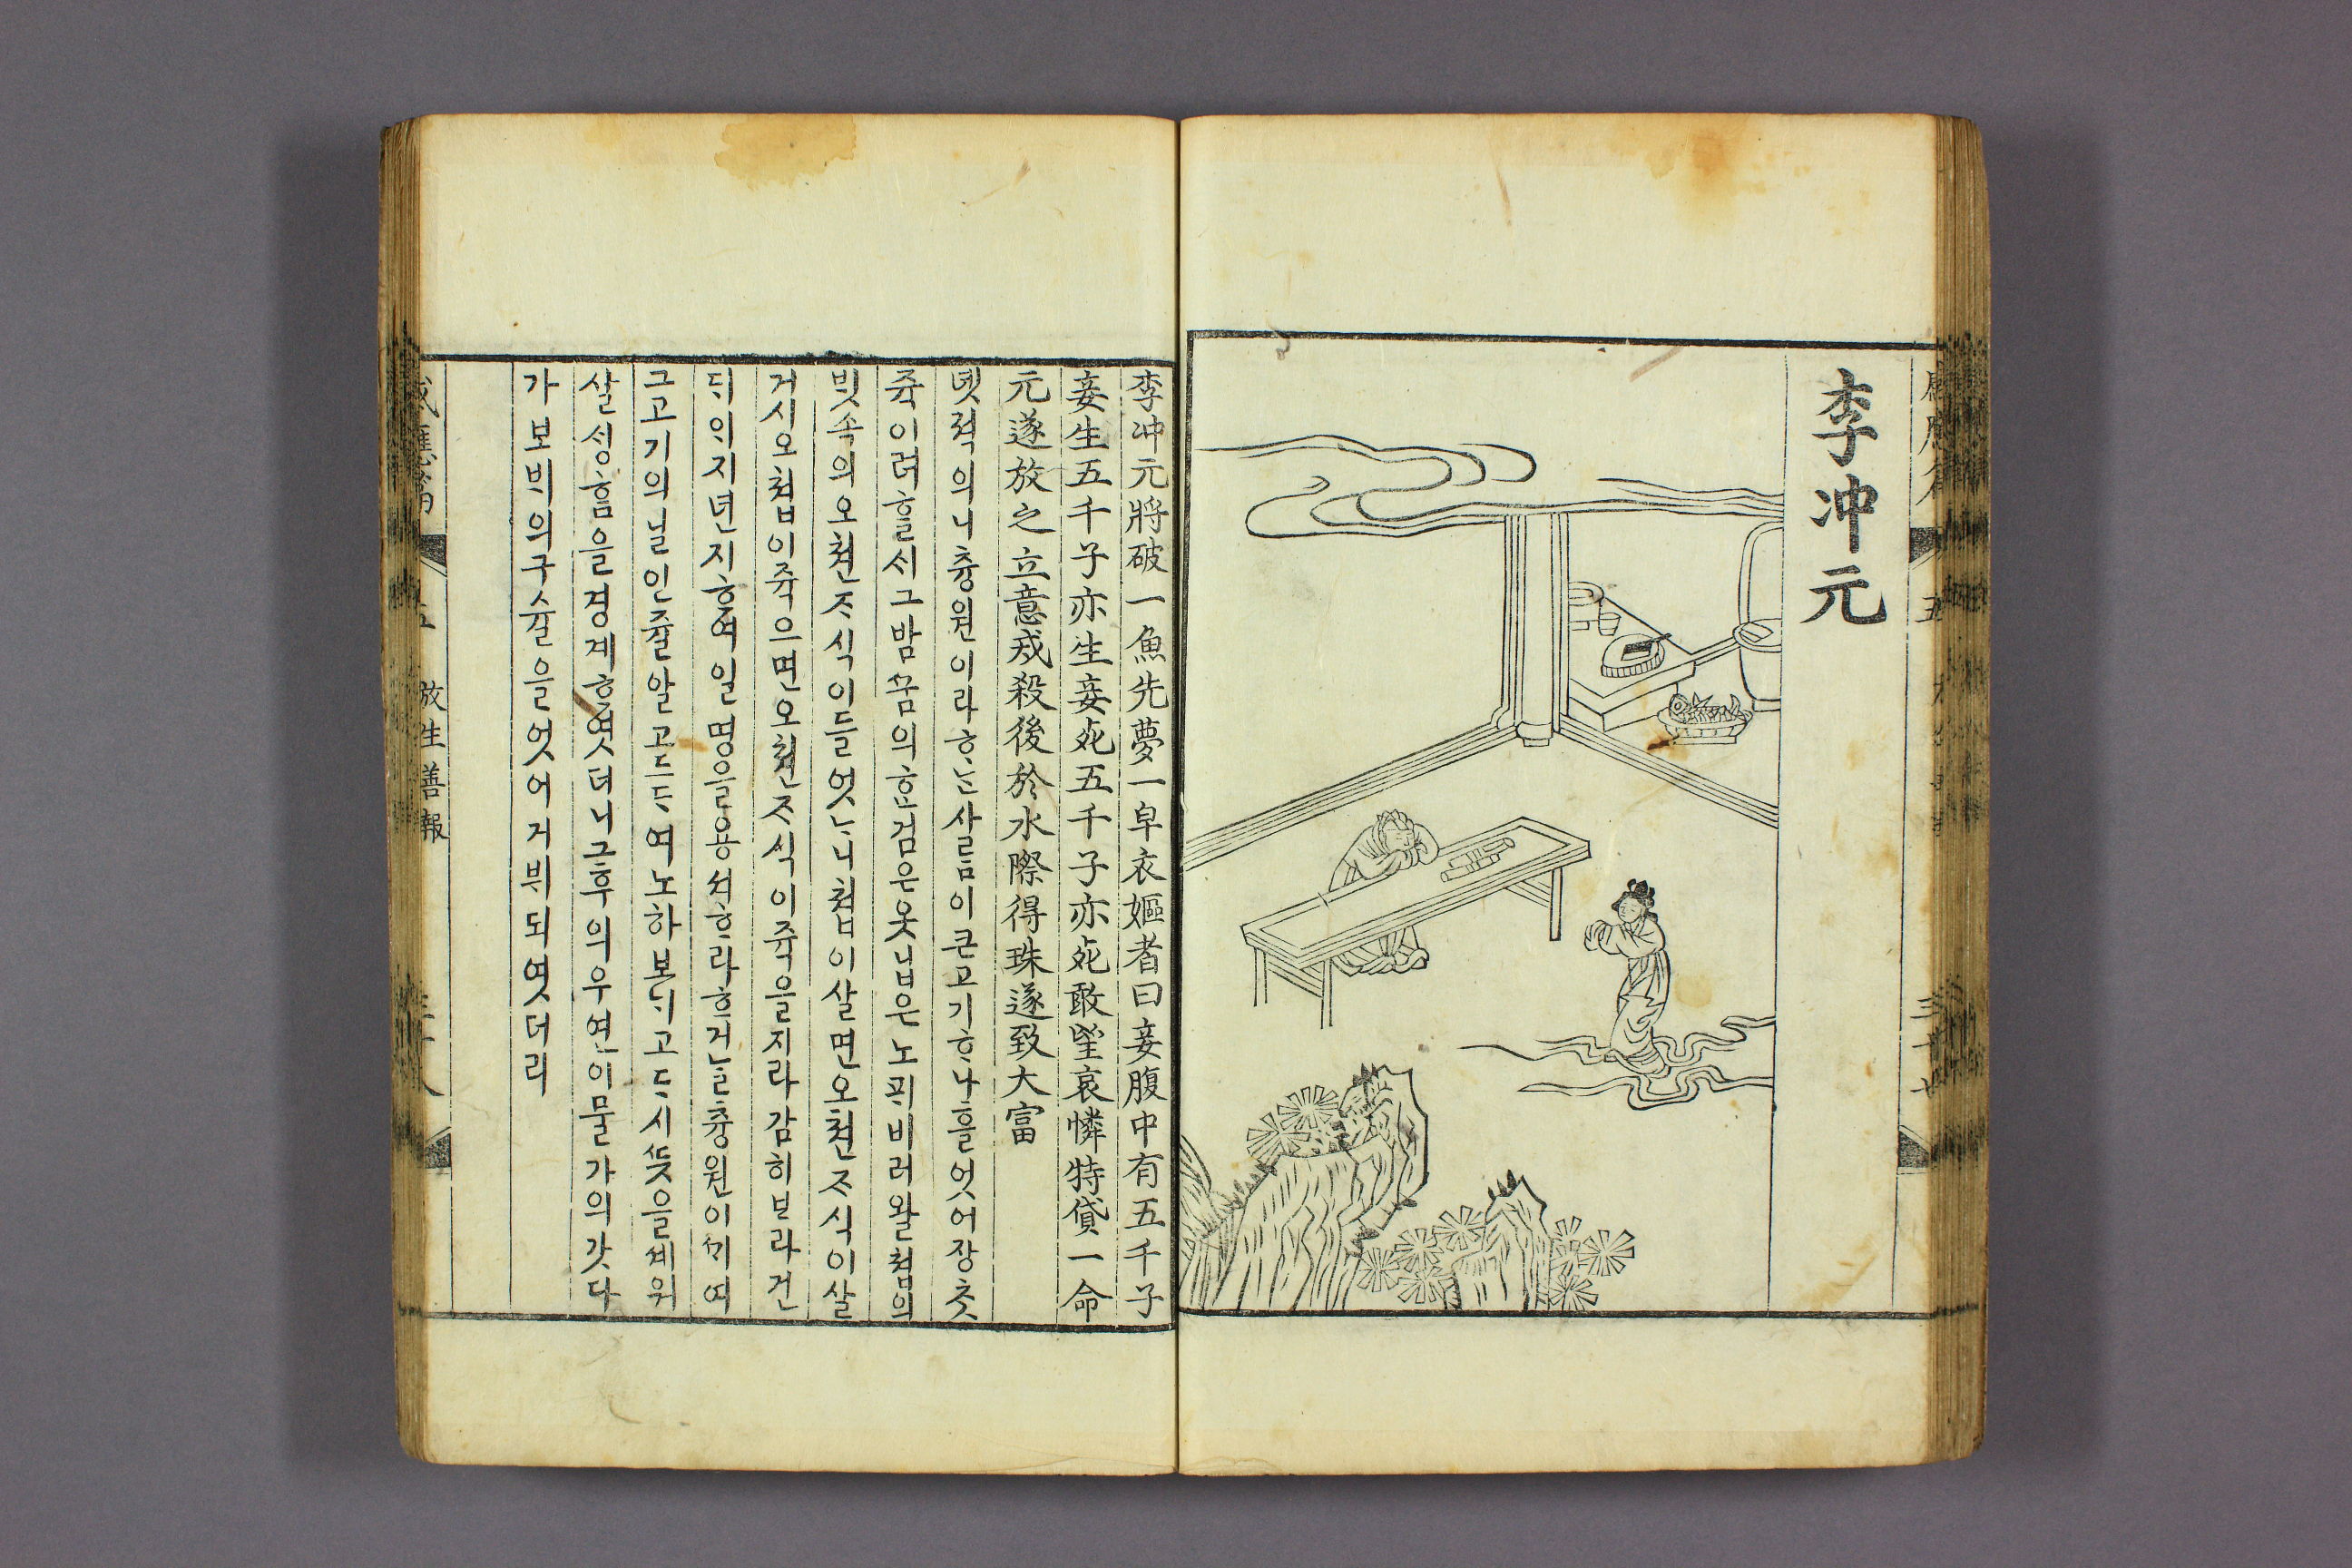 李冲元
李冲元將破一魚先夢一皁衣嫗者曰妾腹中有五千子
妾生五千子亦生妾死五千子亦死敢望哀憐特貸一命
元遂放之立意戒殺後於水際得珠遂致大富
녯젹의니츙원이라ᄒᆞᄂᆞᆫ사ᄅᆞᆷ이큰고기ᄒᆞ나흘엇어장ᄎᆞᆺ
쥭이려ᄒᆞᆯ시그밤ᄭᅮᆷ의ᄒᆞᆫ검은옷닙은노ᄑᆡ비러왈쳡의
ᄇᆡᆺ속의오쳔ᄌᆞ식이들엇ᄂᆞ니쳡이살면오쳔ᄌᆞ식이살
거시오쳡이쥭으면오쳔ᄌᆞ식이쥭을지라감히ᄇᆞ라건
ᄃᆡᄋᆡ지년지ᄒᆞ여일명을용셔ᄒᆞ라ᄒᆞ거ᄂᆞᆯ츙원이ᄭᆡ여
그고기의닐인쥴알고드ᄃᆞ여노하보ᄂᆡ고ᄃᆞ시ᄯᅳᆺ을셰워
살ᄉᆡᆼᄒᆞᆷ을경계ᄒᆞ엿더니그후의우연이물가의갓다
가보ᄇᆡ의구슬을엇어거뷔되엿더리
感應篇 五 放生善報